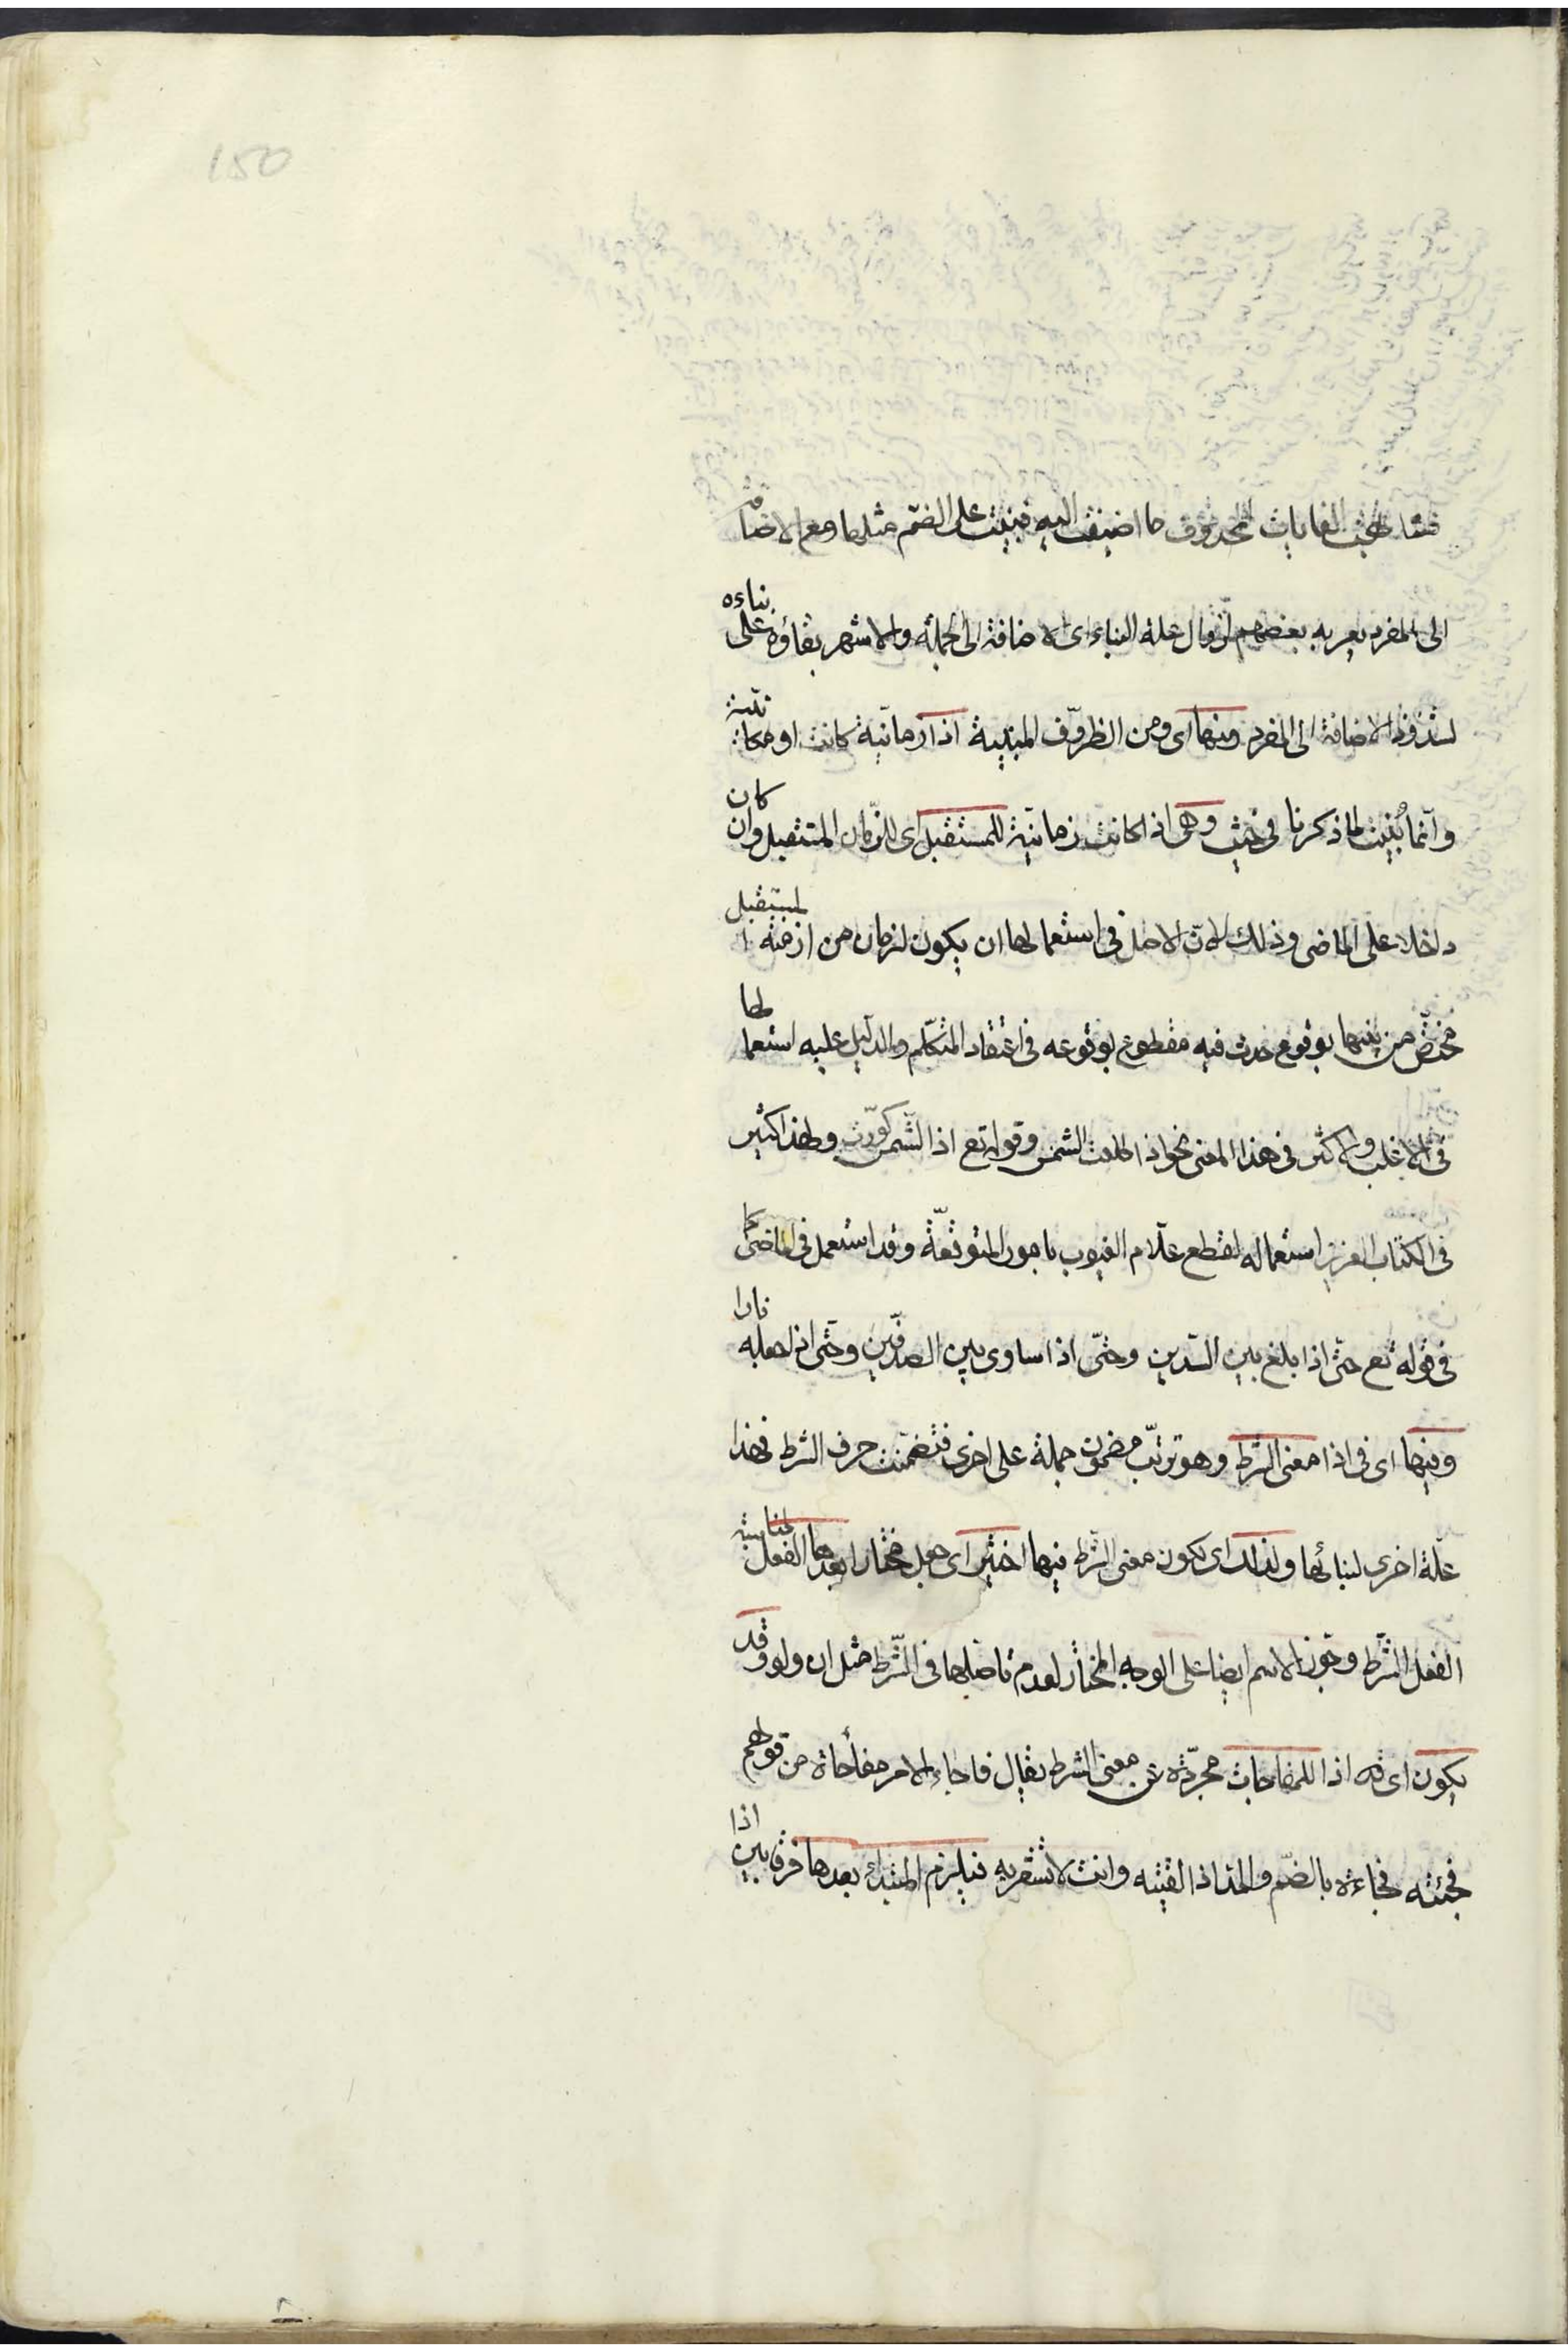 150
فشابهت الغايات المحذوف ما اضيفت اليه فبنيت على الضم مثلها ومع الاضافة
الى المفرد يعربه بعضهم لزوال علة البناء اى الاضافة الى الجملة والاشهر بقاؤه على بناءه
لشذوذ الاضافة الى المفرد ومنها اى ومن الظروف المبنية اذا زمانية كانت او مكانية
وانما بُنيت لما ذكرنا فى حيث وهى اذا كانت زمانية للمستقبل اى للزمان المستقبل وان كان
داخلا على الماضى وذلك لان الاصل فى استعمالها ان يكون لزمان من ازمنة المستقبل
مختص من بينها بوقوع حدث فيه مقطوع بوقوعه فى اعتقاد المتكلم والدليل عليه استعمالها
فى الاغلب والاكثر فى هذا المعنى نحو اذا طلعت الشمس وقوله تع اذا الشّمس كوّرت ولهذا كثير
فى الكتاب العزيز استعماله لقطع علّام الغيوب بامور المتوقّعة وقد استعمل فى الماضى كما
فى قوله تع حتى اذا بلغ بين السّدين وحتّى اذا ساوى بين الصدفين وحتى اذا جعله نارا
وفيها اى فى اذا معنى الشرط وهو ترتّب مضمون جملة على اخرى فتضمنت حرف الشرط فهذا
علّة اخرى لبنائها ولذلك اى لكون معنى الشرط فيها اختير اى جعل مختارا بعدها الفعل لمناسبة
الفعل الشّرط وجوز الاسم ايضا على الوجه المختار لعدم تاصلها فى الشّرط مثل ان ولو وقد
يكون اى اذا للمفاجات مجرّدة عن معنى الشرط يقال فاجاء الامر مفاجاة من قولهم
فجئته فجاءة بالضمّ والمدّ اذا لقيته وانت لا تشعر به فيلزم المبتدأ بعدها فرقا بين اذا